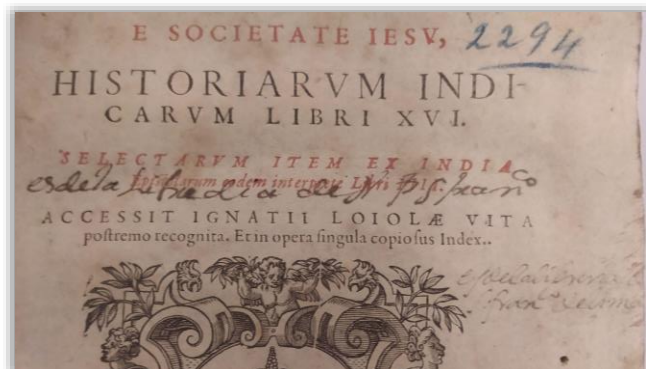 E SOCIETATE IESV, 2294
HISTORIARVM INDI-
CARVM LIBRI XVI.
SELECTARVM ITEM EX INDIA
Epistolarum eodem interprete Libri
es de la libreria de
ACCESSIT IGNATII LOIOLÆ VITA
postremo recognita. Et in opera singula copiosus Index..
es de la libreria